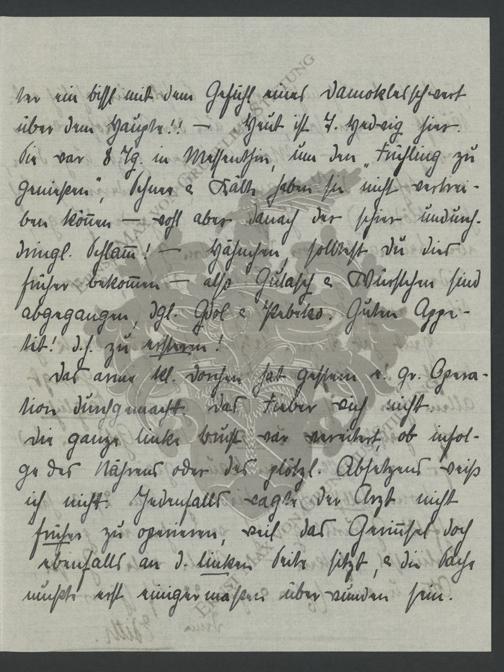 ter ein bissl mit dem Gefühl eines Damoklesschwert
über dem Haupte!! — Heut ist T. Hedwig hier.
Sie war 8 Tg. in Messenthin, um den „Frühling zu
genießen", Schnee & Kälte haben sie nicht vertrei-
ben können — wohl aber danach der schier undurch-
dringl. Schlamm! — solltest Du dies
früher bekommen — also Gulasch & Würstchen sind
abgegangen, dgl. & Guten Appe-
tit! d.h. zu ersterem!
Das arme kl. Dorchen hat gestern e. gr. Opera-
tion durchgemacht. Das Fieber wich nicht
die ganze linke Brust war vereitert, ob infol-
ge des Nährens oder des plötzl. Absetzens weiß
ich nicht. Jedenfalls wagte der Arzt nicht
früher zu operieren, weil das Gerinnsel doch
ebenfalls an d. linken Seite sitzt, & die Sache
mußte erst einigermaßen überwunden sein.